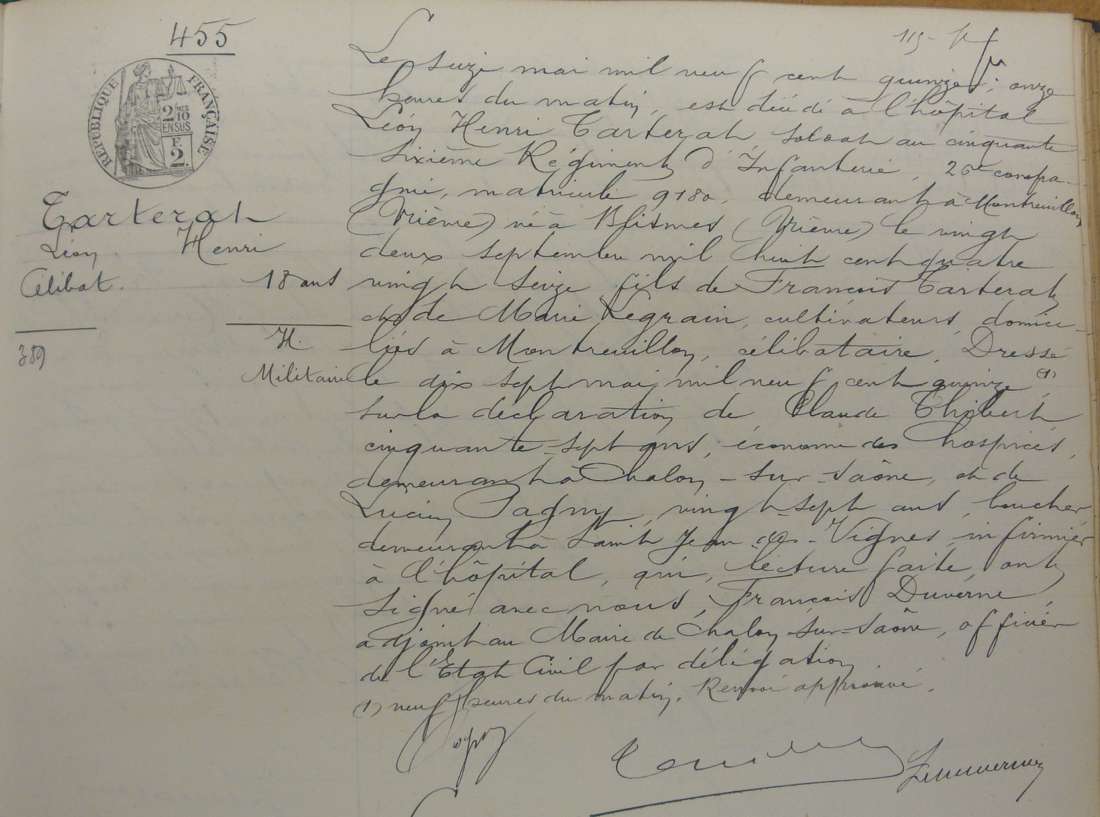 455
RÉPUBLIQUE FRANÇAISE
2/10
EN SUS
F
2.
Tarterat
Léon Henri
Célibat. 18 ans
H.
389
Militaire
Le seize mai mil neuf cent quinze, onze
heures du matin, est décédé à l'hôpital
Léon Henri Tarterat soldat au cinquante
sixième Régiment d'Infanterie, 26e compa-
gnie, matricule 9180, demeurant à Montreuillon
(Nièvre) né à Blismes (Nièvre) le vingt
deux septembre mil huit cent quatre
vingt seize fils de François Tarterat
et de Marie Legrain, cultivateurs, domici-
liés à Montreuillon, célibataire. Dressé
le dix sept mai mil neuf cent quinze (1)
sur la déclaration de Claude Thibert
cinquante-sept ans, économe des hospices,
demeurant à Chalon-sur-Saône, et de
Lucien Pagny, vingt sept ans, boucher
demeurant à Saint Jean-des-Vignes, infirmier
à l'hôpital, qui, lecture faite, ont
signé avec nous, François Duverne,
adjoint au Maire de Chalon-sur-Saône, officier
de l'Etat Civil par délégation
(1) neuf heures du matin. Renvoi approuvé.